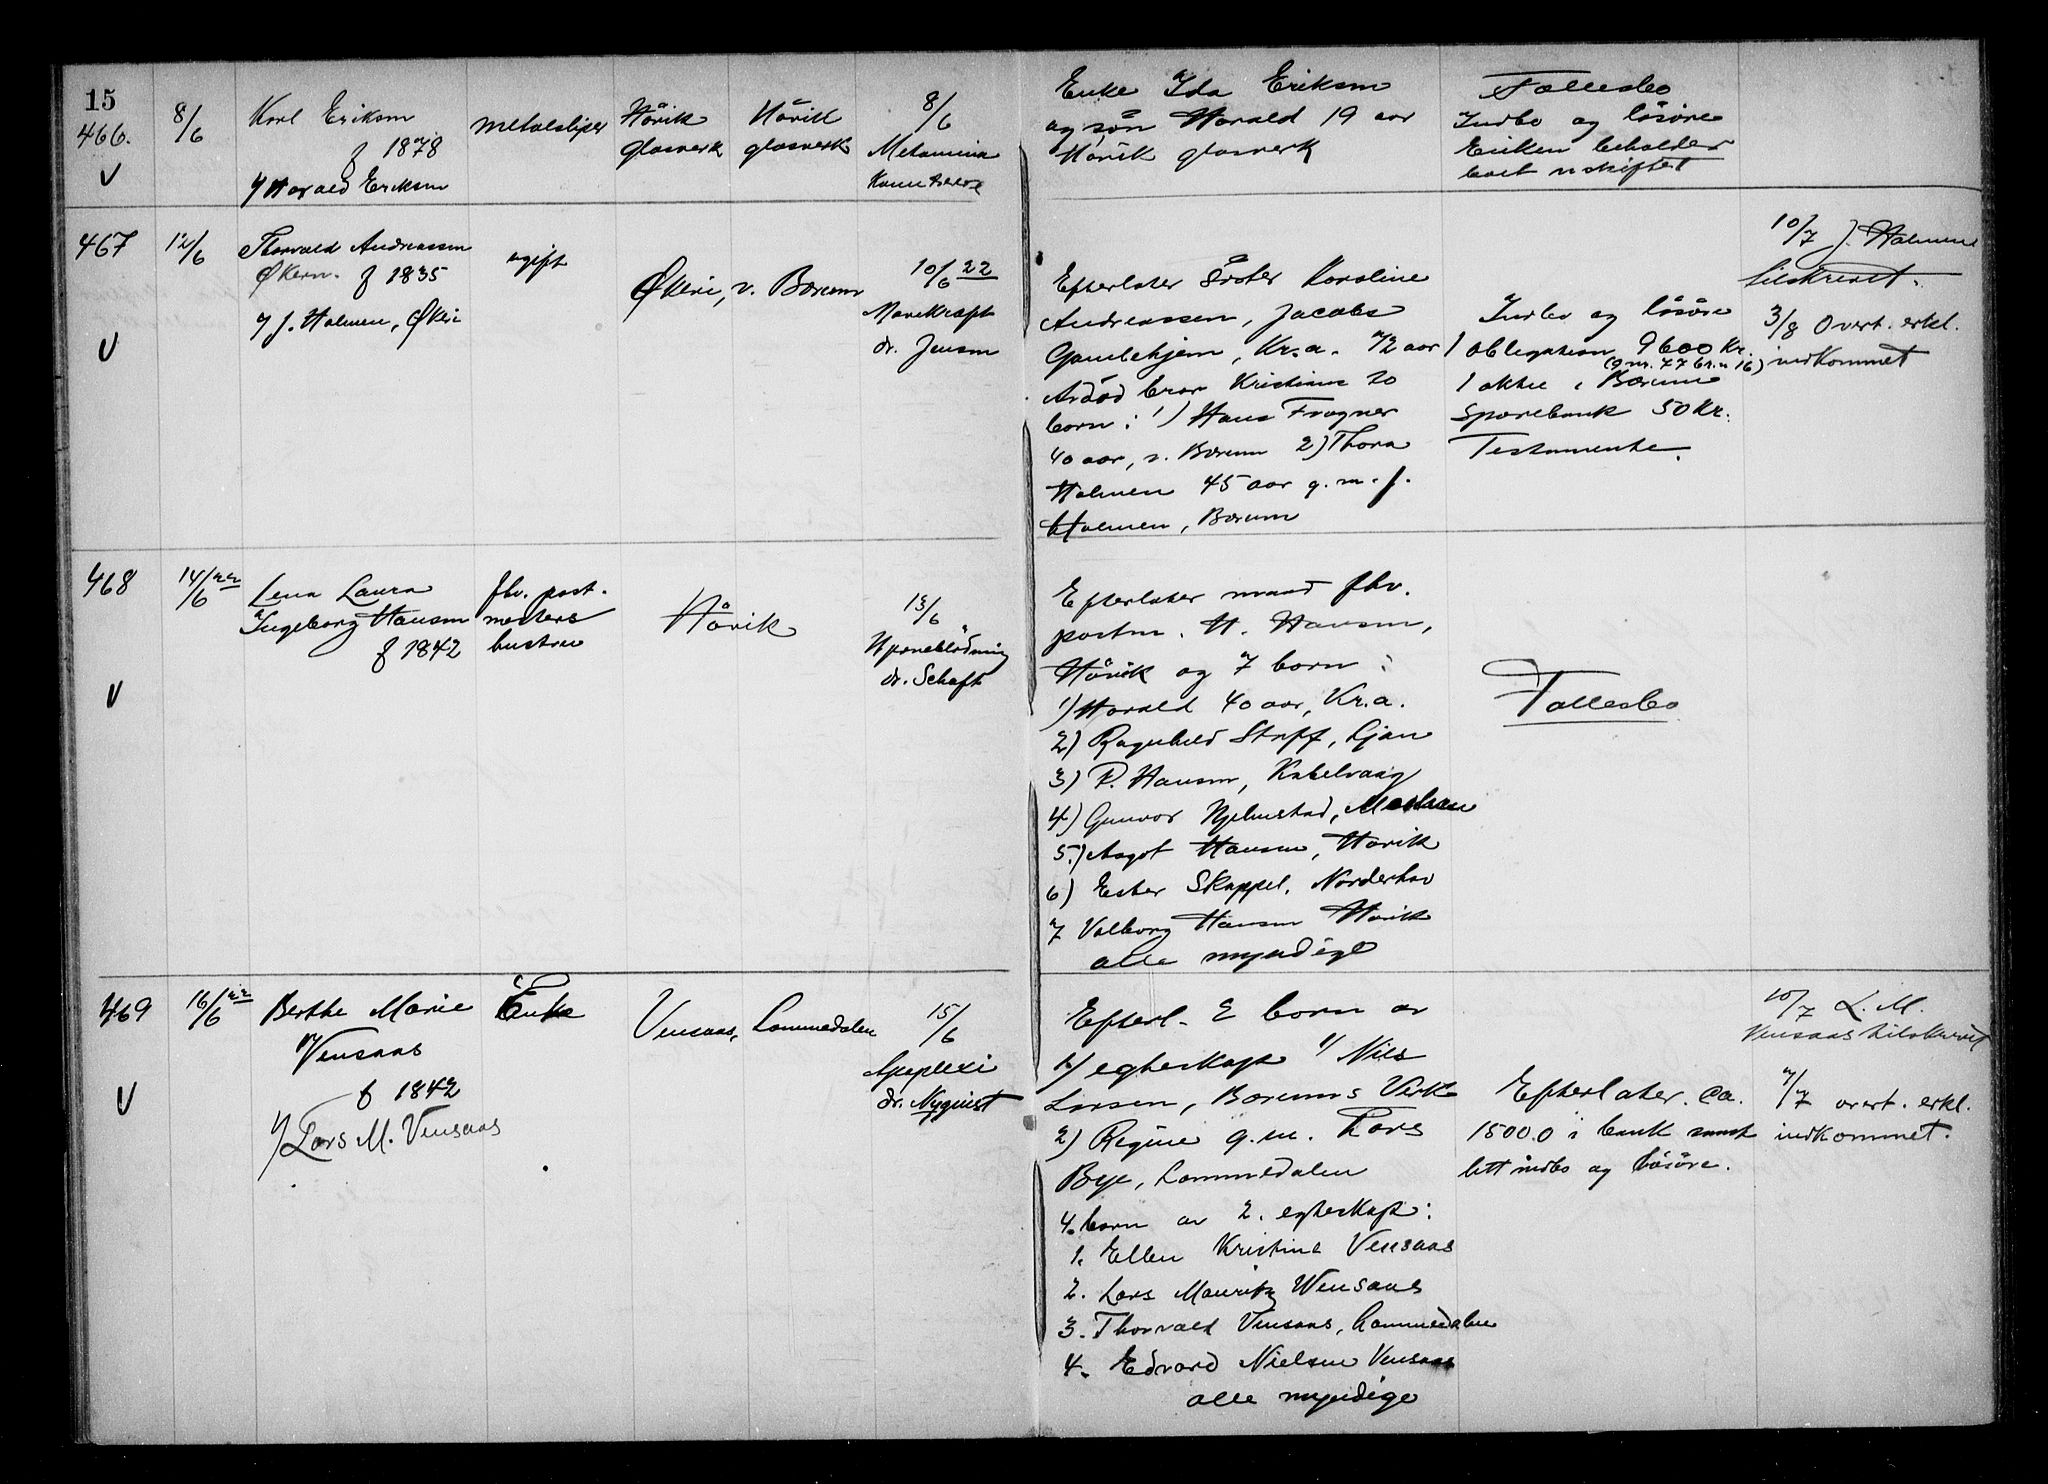 15
466.
V
8/6
Karl Eriksen
f 1878
v/ Harald Eriksen
metalsliper
Hövik
glasverk
Hövik
glasverk
8/6
Enke Ida Eriksen
og sön Harald 19 aar
Hövik glasverk
Fællesbo
Indbo og lösöre
Enken beholder
boet uskiftet
467
V
12/6
Thorvald Andreassen
Økern. f 1835
v/ J. Holmen, Økeri
ugift
Økeri, v. Bærum
10/6 22
Mavekræft
dr. Jensen
Efterlater söster Karoline
Andreassen, Jacobs
Gamlehjem, Kr.a. 72 aar
Avdöd bror Kristians 20
born: 1) Hans Frogner
40 aar, v. Bærum 2) Thora
Holmen 45 aar g.m. J.
Holmen, Bærum
Indbo og lösöre
1 obligation 9600 Kr.
(g.nr. 77 br.n 16)
1 aktie i Bærums
Sparebank 50 Kr.
Testamente.
10/7 J. Holmen
tilskrevet.
3/8 Overt. erkl.
indkommet
468
V
14/6 22
Lena Laura
Ingeborg Hansen
f 1842
fhv. post-
mesters
hustru
Hövik
13/6
Hjerneblödning
dr. Schaft
Efterlater mand fhv.
postm. H. Hansen,
Hövik og 7 born:
1) Harald 40 aar, Kr.a.
2) Ragnhild Steff, Ljan
3) P. Hansen, Kabelvaag
4) Gunvor Hjelmstad,
5.) Aagot Hansen, Hövik
6) Ester Skappel, Norderhov
7 Valborg Hansen Hövik
alle myndige
Fællesbo
469
V
16/6 22
Berthe Marie
Vensaas
f 1842
v/ Lars M. Vensaas
Enke
Vensaas, Lommedalen
15/6
Apoplexi
dr. Nyquist
Efterl. 2 born av
1) egteskap 1) Nils
Larsen, Bærums Verk
2) Regine g.m. Lars
Bye, Lommedalen
4. born av 2. egteskap:
1. Ellen Kristine Vensaas
2. Lars Mauritz Wensaas
3. Thorvald Vensaas, Lommedalen
4. Edvard Nielsen Vensaas
alle myndige
Efterlater ca.
1500.0 i bank samt
litt indbo og lösöre.
10/7 L. M.
Vensaas tilskrevet
7/7 overt. erkl.
indkommet.